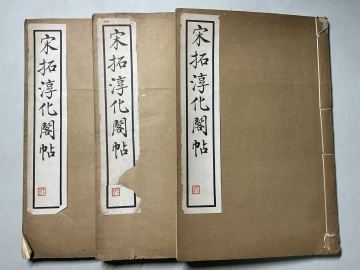 宋拓淳化閣帖
宋拓淳化閣帖
宋拓淳化閣帖